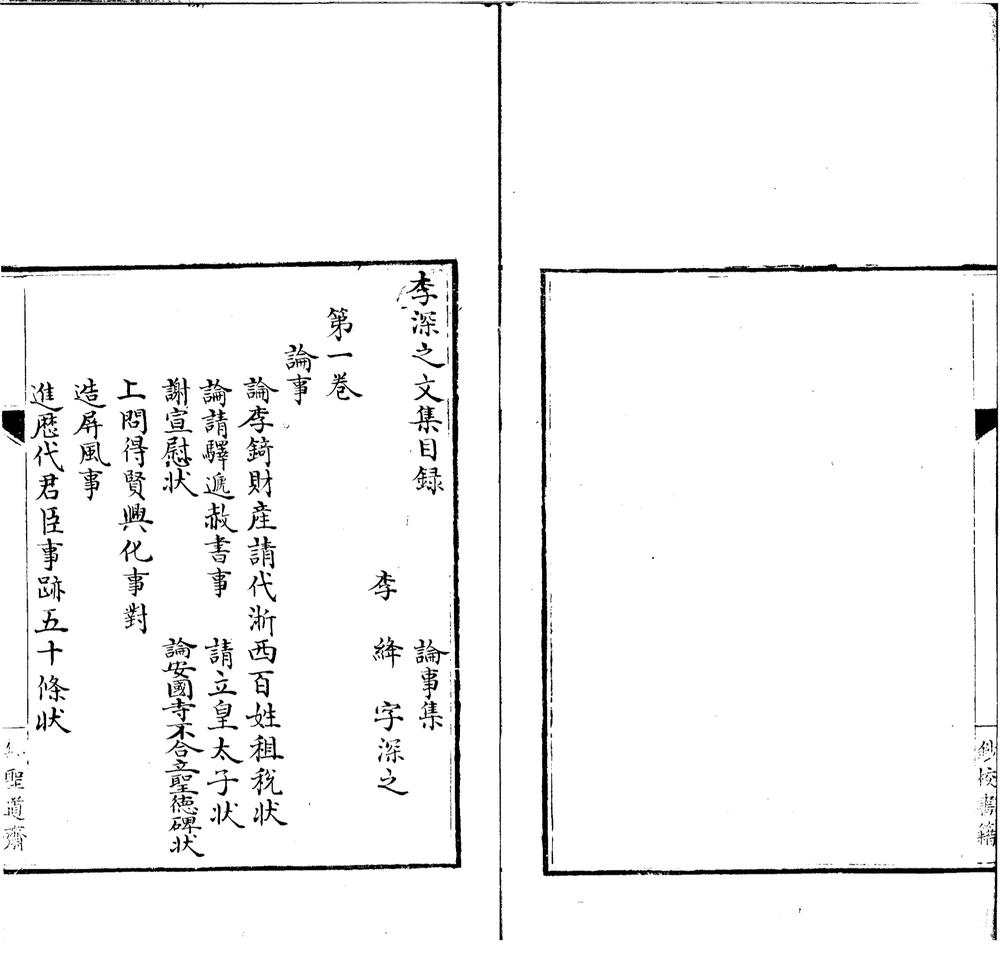 鈔校書籍
李深之文集目録 論事集
李絳字深之
第一卷
論事
論李錡財産請代浙西百姓租税狀
論請驛遞赦書事 請立皇太子狀
謝宣慰狀 論安國寺不合立聖德碑狀
上問得賢興化事對
造屏風事
進歷代君臣事跡五十條狀
聖道齋